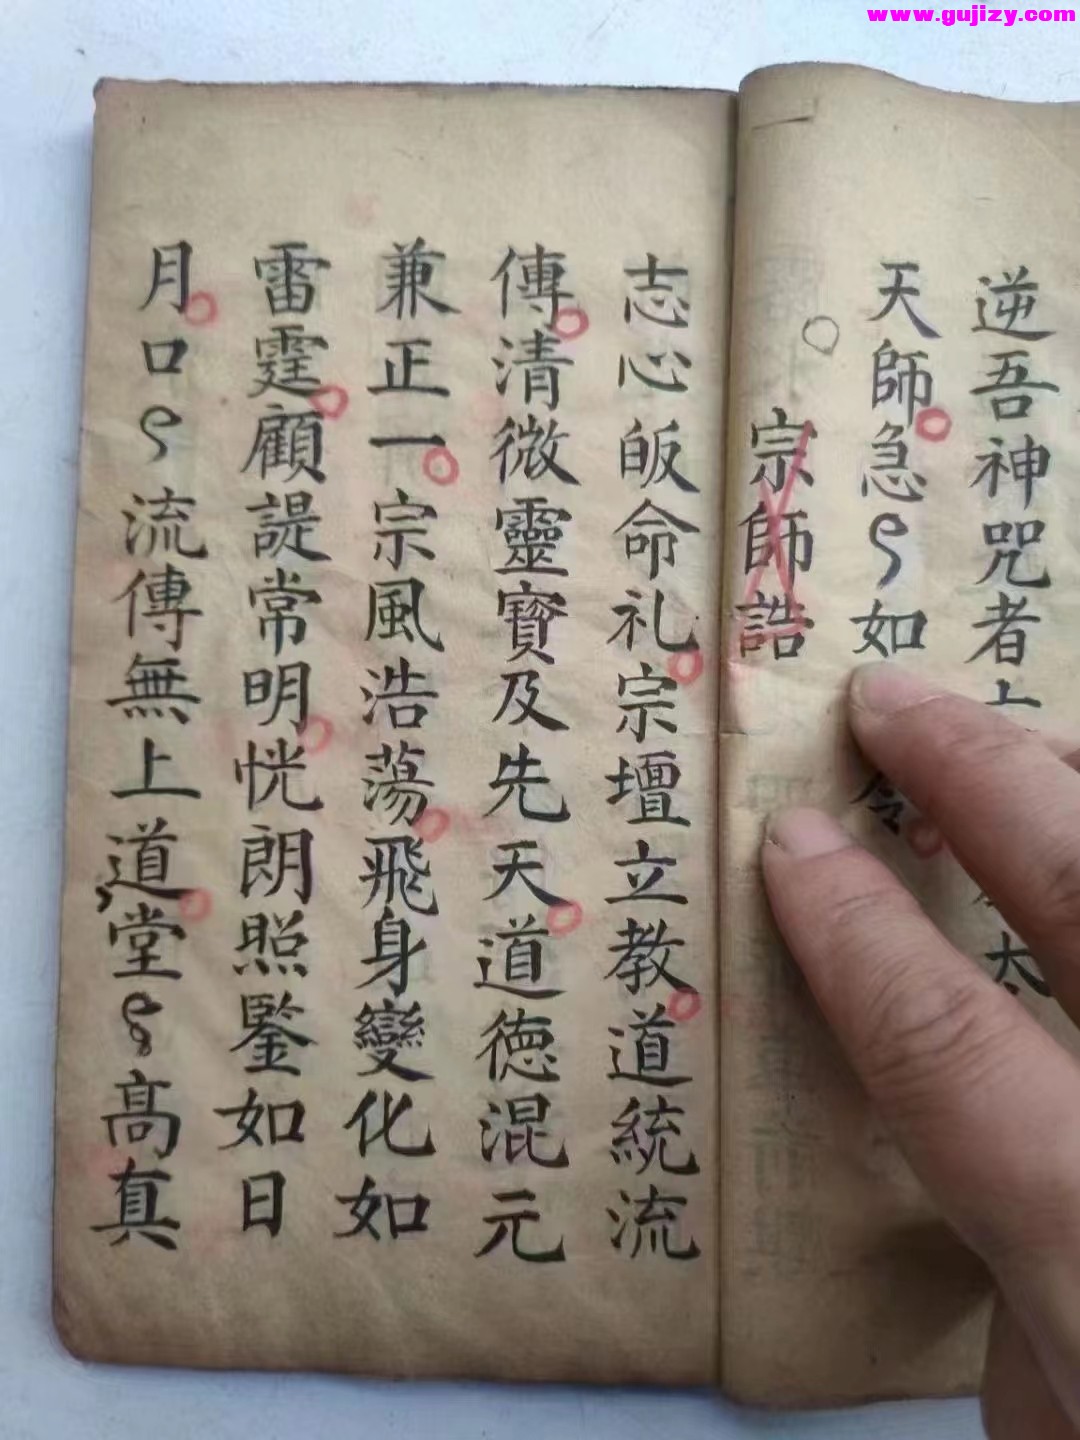 www.gujizy.com
逆吾神咒者
天師急如
宗師誥
志心皈命礼宗壇立教道統流
傳清微靈寶及先天道德混元
兼正一宗風浩蕩飛身變化如
雷霆顧諟常明恍朗照鑒如日
月口流傳無上道堂高真